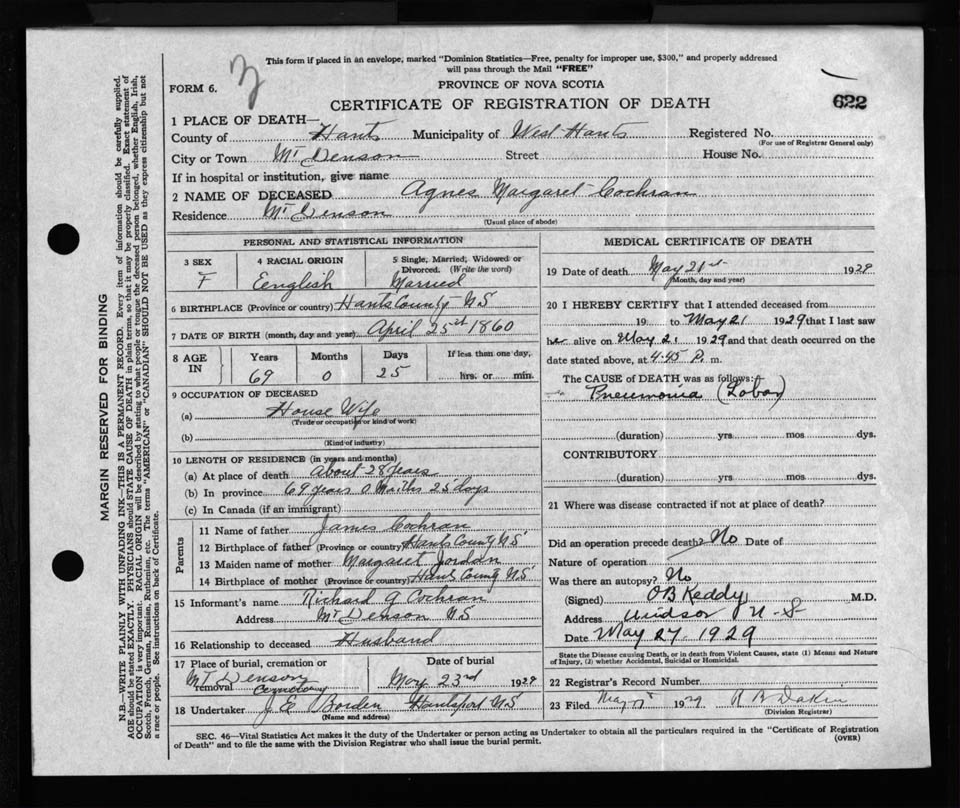 This form if placed in an envelope, marked "Dominion Statistics—Free, penalty for improper use, $300," and properly addressed
will pass through the Mail "FREE"
FORM 6.
PROVINCE OF NOVA SCOTIA
CERTIFICATE OF REGISTRATION OF DEATH
622
1 PLACE OF DEATH—
County of Hants Municipality of West Hants Registered No.
(For use of Registrar General only)
City or Town Mt Denson Street House No.
If in hospital or institution, give name
2 NAME OF DECEASED Agnes Margaret Cochran
Residence Mt Denson
(Usual place of abode)
MARGIN RESERVED FOR BINDING
N.B.—WRITE PLAINLY WITH UNFADING INK—THIS IS A PERMANENT RECORD. Every item of information should be carefully supplied.
AGE should be stated EXACTLY. PHYSICIANS should STATE CAUSE OF DEATH in plain terms, so that it may be properly classified. Exact statement of
OCCUPATION is very important. RACIAL ORIGIN will be described by stating to what people or tongue the deceased person belonged, whether English, Irish,
Scotch, French, German, Russian, Ruthenian, etc. The terms "AMERICAN" or "CANADIAN" SHOULD NOT BE USED as they express citizenship but not
a race or people. See instructions on back of Certificate.
PERSONAL AND STATISTICAL INFORMATION
3 SEX
F
4 RACIAL ORIGIN
English
5 Single, Married, Widowed or
Divorced. (Write the word)
Married
6 BIRTHPLACE (Province or country) Hants County NS
7 DATE OF BIRTH (month, day and year) April 25st 1860
8 AGE
IN
Years
69
Months
0
Days
25
If less than one day,
hrs. or min.
9 OCCUPATION OF DECEASED
(a) House Wife
(Trade or occupation or kind of work)
(b)
(Kind of industry)
10 LENGTH OF RESIDENCE (in years and months)
(a) At place of death About 28 years
(b) In province 69 years 0 Months 25 days
(c) In Canada (if an immigrant)
Parents
11 Name of father James Cochran
12 Birthplace of father (Province or country) Hants County NS
13 Maiden name of mother Margaret Jordan
14 Birthplace of mother (Province or country) Hants County NS
15 Informant's name Richard A Cochran
Address Mt Denson NS
16 Relationship to deceased Husband
17 Place of burial, cremation or
removal
Mt Denson
Cemetery
Date of burial
May 23rd 1929
18 Undertaker J E Borden Hantsport NS
(Name and address)
MEDICAL CERTIFICATE OF DEATH
19 Date of death May 21st 1929
(Month, day and year)
20 I HEREBY CERTIFY that I attended deceased from
19 to May 21 1929 that I last saw
her alive on May 21 1929 and that death occurred on the
date stated above, at 4.45 P. m.
The CAUSE of DEATH was as follows:
Pneumonia (Lobar)
(duration) yrs mos dys.
CONTRIBUTORY
(duration) yrs mos dys.
21 Where was disease contracted if not at place of death?
Did an operation precede death? No Date of
Nature of operation
Was there an autopsy? No
(Signed) O B Keddy M.D.
Address Windsor N-S
Date May 27 1929
State the Disease causing Death, or in death from Violent Causes, state (1) Means and Nature
of Injury, (2) whether Accidental, Suicidal or Homicidal.
22 Registrar's Record Number
23 Filed May 1929
(Division Registrar)
SEC. 46—Vital Statistics Act makes it the duty of the Undertaker or person acting as Undertaker to obtain all the particulars required in the "Certificate of Registration
of Death" and to file the same with the Division Registrar who shall issue the burial permit.
(OVER)